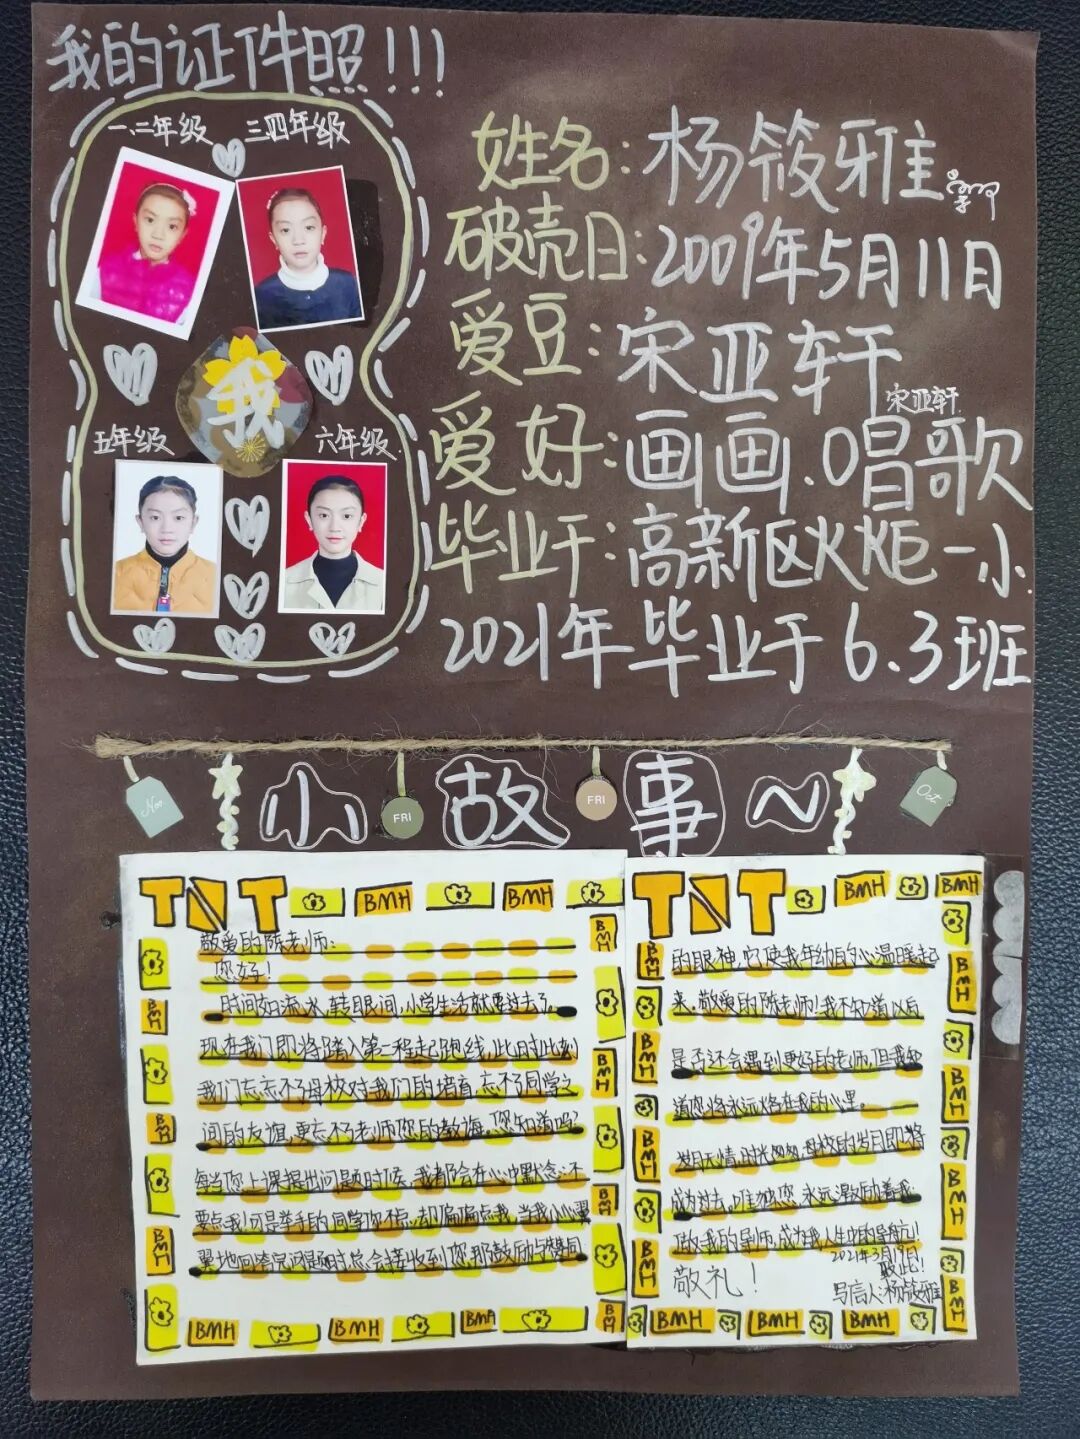 我的证件照!!!
一、二年级
三四年级
我
五年级
六年级
姓名:杨筱雅
破壳日:2009年5月11日
爱豆:宋亚轩
宋亚轩
爱好:画画、唱歌
毕业于:高新区火炬一小
2021年毕业于6.3班
Nov
小
FRI
故
FRI
事~
Oct
TNT BMH BMH
敬爱的陈老师:
您好!
时间如流水,转眼间,小学生活就要过去了,
现在我们即将踏入第二程起跑线,此时此刻
我们忘不了母校对我们的培育,忘不了同学之
间的友谊,更忘不了老师您的教诲,您知道吗?
每当您上课提出问题时候,我都会在心中默念:不
要点我!可是举手的同学你不点,却偏偏点我,当我小心翼
翼地回答完问题时,总会接收到您那鼓励与赞同
BMH
BMH
BMH
BMH
BMH
BMH
BMH
BMH
BMH BMH BMH
TNT BMH BMH
的眼神,它使我年幼的心温暖起
来,敬爱的陈老师!我不知道以后
是否还会遇到更好的老师,但我知
道您将永远烙在我的心里。
岁月无情,时光匆匆,母校的岁月即将
成为过去,唯独您,永远激励着我,
做我的导师,成为我人生中的导航!
2021年3月19日
敬礼!
敬此!
写信人:杨筱雅
BMH
BMH
BMH
BMH
BMH
BMH
BMH
BMH
BMH BMH BMH